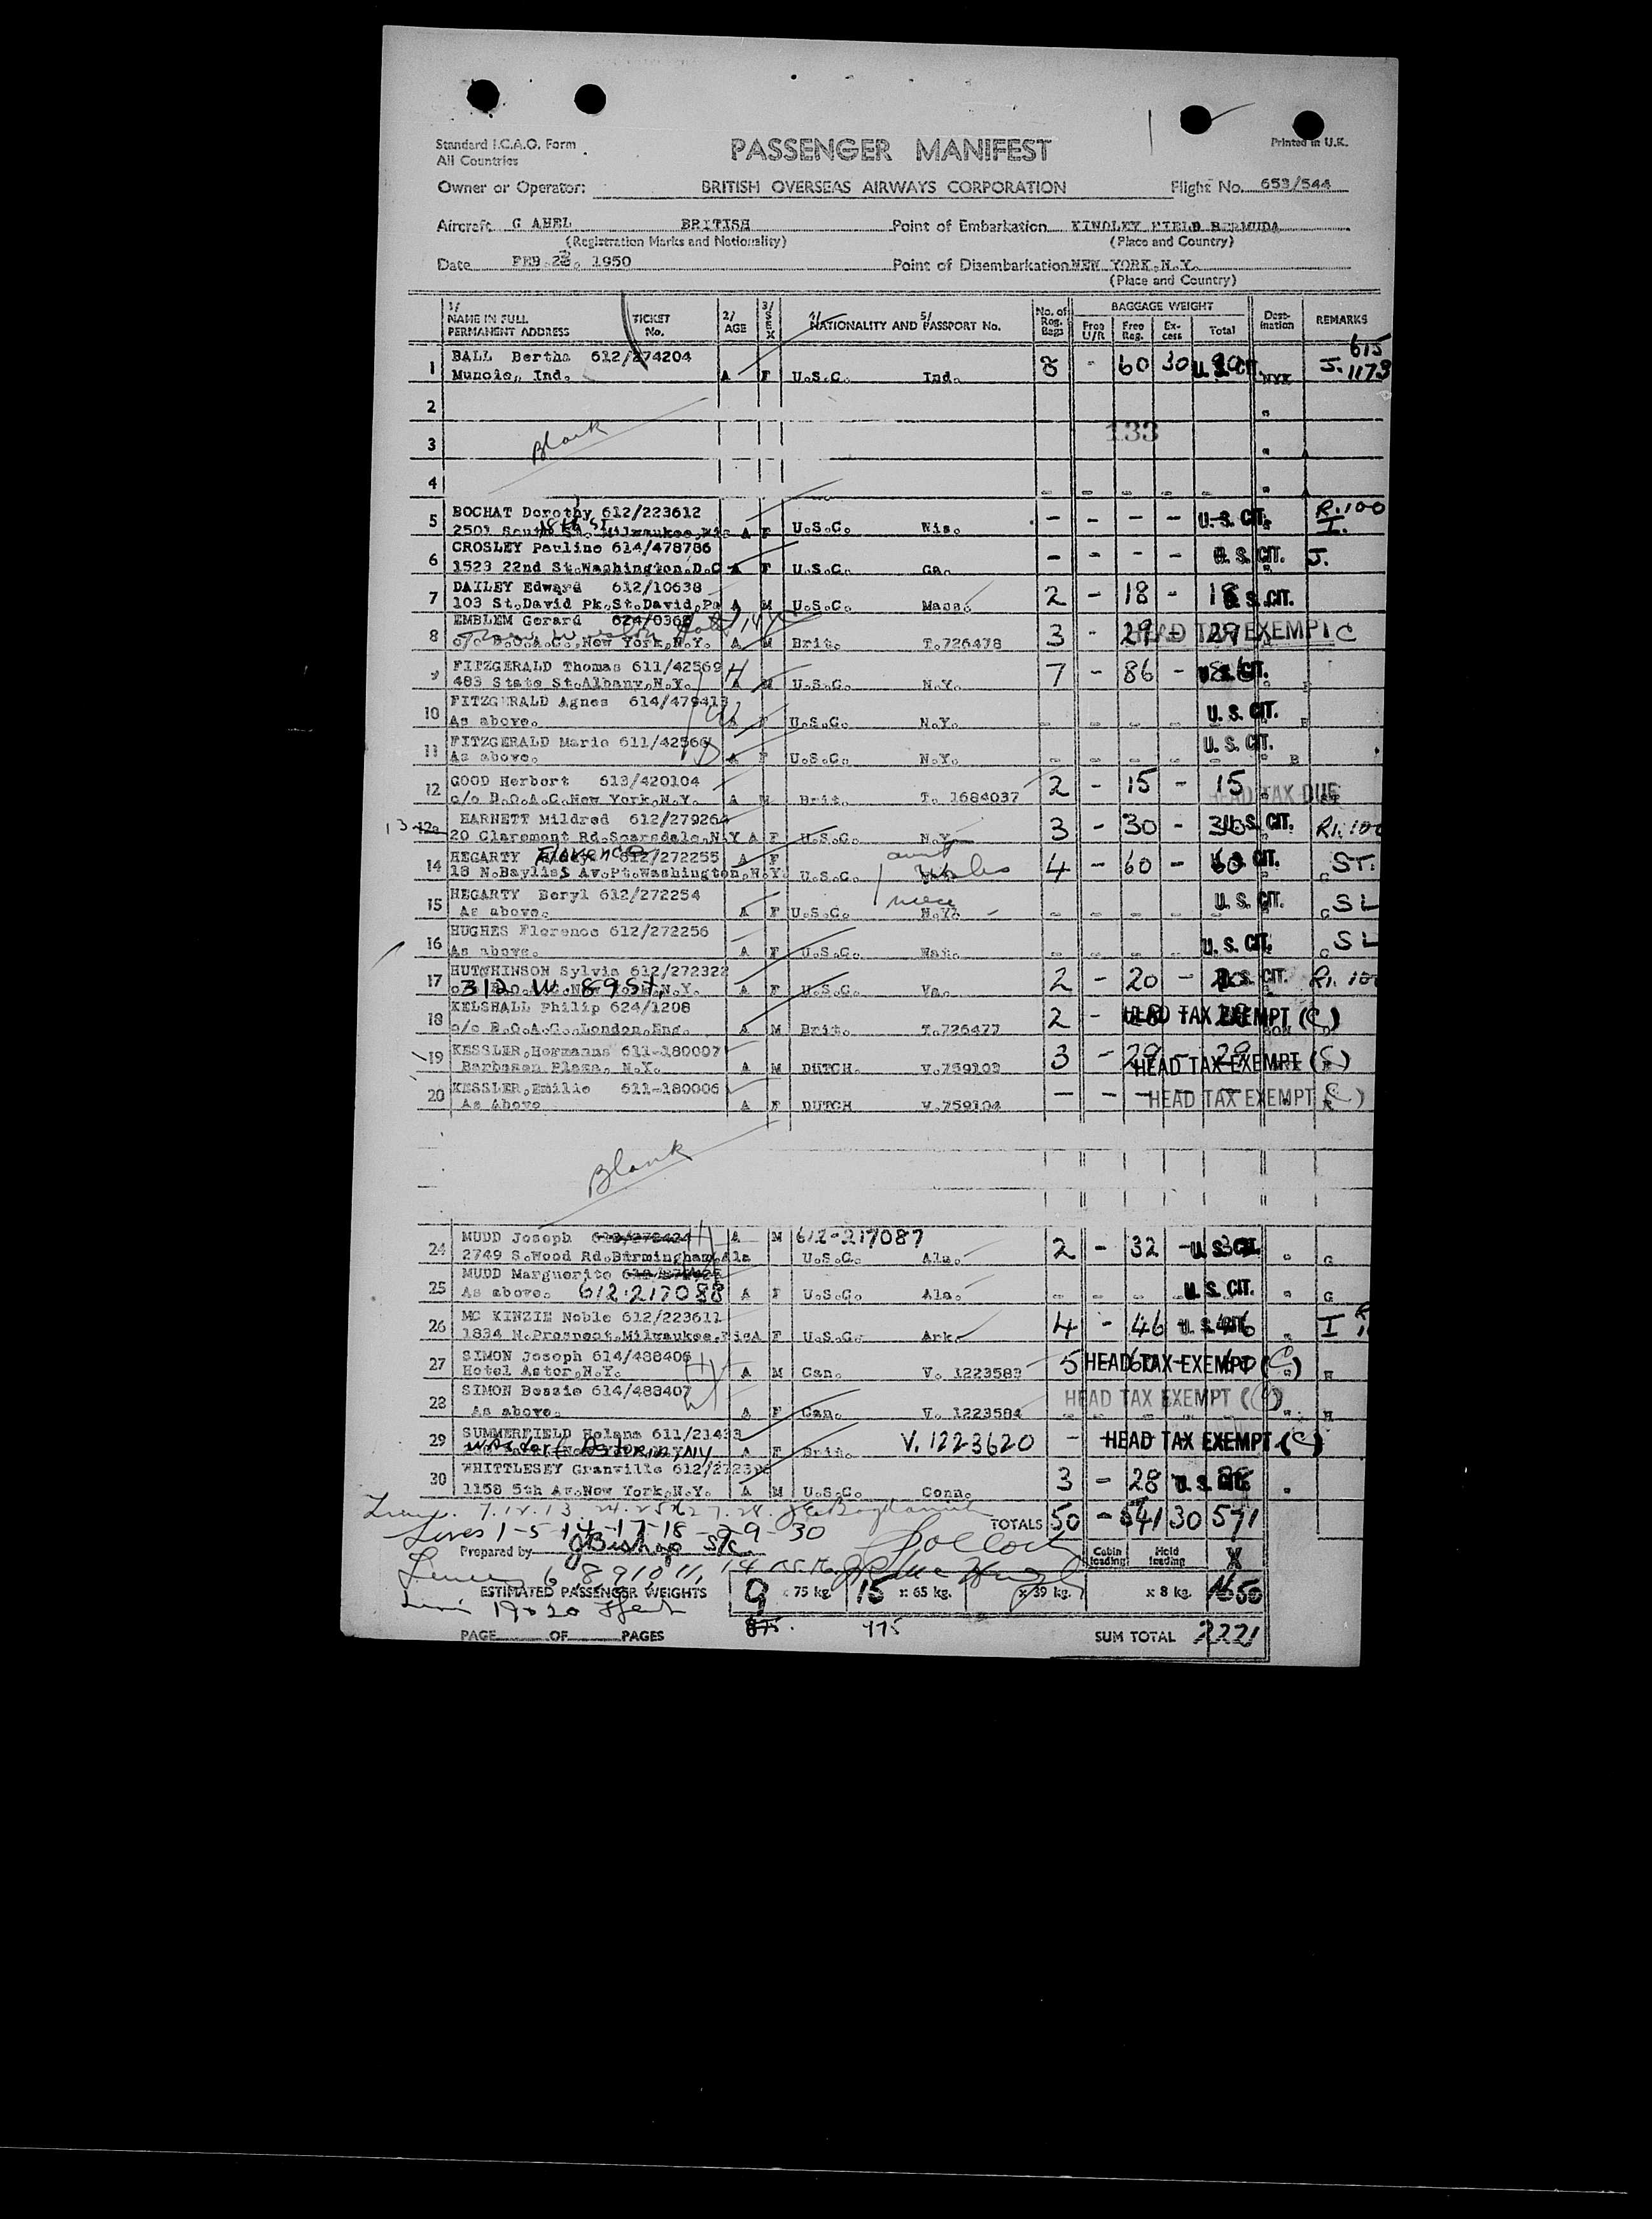 Standard I.C.A.O. Form
All Countries
PASSENGER MANIFEST
Printed in U.K.
Owner or Operator: BRITISH OVERSEAS AIRWAYS CORPORATION Flight No. 653/544
Aircraft G AHEL BRITISH Point of Embarkation KINDLEY FIELD BERMUDA
(Registration Marks and Nationality) (Place and Country)
Date FEB 23, 1950 Point of Disembarkation NEW YORK, N.Y.
(Place and Country)
1/ NAME IN FULL PERMANENT ADDRESS TICKET No. 2/ AGE 3/ SEX 4/ NATIONALITY AND 5/ PASSPORT No. No. of Reg. Bags BAGGAGE WEIGHT Free U/R Free Reg. Ex-cess Total Dest-ination REMARKS
1 BALL Bertha 612/274204 615
Muncie, Ind. A F U.S.C. Ind. 8 - 60 30 90 U.S. CIT. NYK J. 1173
2 "
3 Blank 133 "
4 - - - - - "
5 BOCHAT Dorothy 612/223612 R.100
2501 South St. Milwaukee, Wis A F U.S.C. Wis. - - - - U.S. CIT. I.
6 CROSLEY Pauline 614/478786
1523 22nd St. Washington, D.C A F U.S.C. Ga. - - - - U.S. CIT. J.
7 DAILEY Edward 612/10638
103 St. David Pk. St. David, Pa A M U.S.C. Mass. 2 - 18 - 18 U.S. CIT.
8 EMBLEM Gerard 624/0362
c/o B.O.A.C. New York, N.Y. A M Brit. T.726478 3 - 29 - 29 HEAD TAX EXEMPT C
9 FITZGERALD Thomas 611/42569 H
483 State St. Albany, N.Y. A M U.S.C. N.Y. 7 - 86 - 86 U.S. CIT.
10 FITZGERALD Agnes 614/479413
As above. A F U.S.C. N.Y. - U.S. CIT. B
11 FITZGERALD Marie 611/42568
As above. A F U.S.C. N.Y. - - - - - U.S. CIT. B
12 GOOD Herbert 613/420104
c/o B.O.A.C. New York, N.Y. A M Brit. T. 1684037 2 - 15 - 15 HEAD TAX DUE
13 12a HARNETT Mildred 612/279264
20 Claremont Rd. Scarsdale, N.Y A F U.S.C. N.Y. 3 - 30 - 30 U.S. CIT. R1.100
14 HEGARTY Florence 612/272255 A F aunt
18 N. Bayliss Av. Pt. Washington, N.Y. U.S.C. Wales 4 - 60 - 60 U.S. CIT. C ST.
15 HEGARTY Beryl 612/272254 niece
As above. A F U.S.C. N.Y. - - - - - U.S. CIT. C SL
16 HUGHES Florence 612/272256
As above. A F U.S.C. - - - - U.S. CIT. C SL
17 HUTCHINSON Sylvia 612/272322
312 W. 89 St, A F U.S.C. Va. 2 - 20 - 20 U.S. CIT. R1.100
18 KELSHALL Philip 624/1208
c/o B.O.A.C. London, Eng. A M Brit. T.726477 2 - HEAD TAX EXEMPT (C)
19 KESSLER, Hermanns 611-180007
Barbezon Plaza, N.Y. A M DUTCH. V.759103 3 - 29 - 29 HEAD TAX EXEMPT (C)
20 KESSLER, Emilie 611-180006
As Above A F DUTCH V.759104 - - - HEAD TAX EXEMPT (C)
Blank
24 MUDD Joseph H A M 612-217087
2749 S. Wood Rd. Birmingham, Ala U.S.C. Ala. 2 - 32 - 32 U.S. CIT. " G
25 MUDD Marguerite
As above. 612.217088 A F U.S.C. Ala. - - - - U.S. CIT. " G
26 MC KINZIE Noble 612/223611
1834 N. Prospect, Milwaukee, Wis A F U.S.C. Ark. 4 - 46 - 46 U.S. CIT. " I
27 SIMON Joseph 614/488406 H
Hotel Astor, N.Y. A M Can. V. 1223583 5 - 60 - 60 HEAD TAX EXEMPT (C) H
28 SIMON Bessie 614/488407
As above. A F Can. V. 1223584 HEAD TAX EXEMPT (C) H
29 SUMMERFIELD Helena 611/21433
Waldorf Astoria, NY A F Brit. V. 1223620 - HEAD TAX EXEMPT (C)
30 WHITTLESEY Granville
1158 5th Av. New York, N.Y. A M U.S.C. Conn. 3 - 28 - 28 U.S. CIT. "
7. 12. 13. 24. 25 27. 28.
Lines 1-5-14-17-18-29-30 TOTALS 50 - 541 30 571
Prepared by JBishop Cabin loading Hold loading X
6 8 9 10 11, 14
ESTIMATED PASSENGER WEIGHTS 9 x 75 kg. 15 x 65 kg. x 39 kg. x 8 kg. 1650
19 & 20
PAGE OF PAGES 975 SUM TOTAL 2221